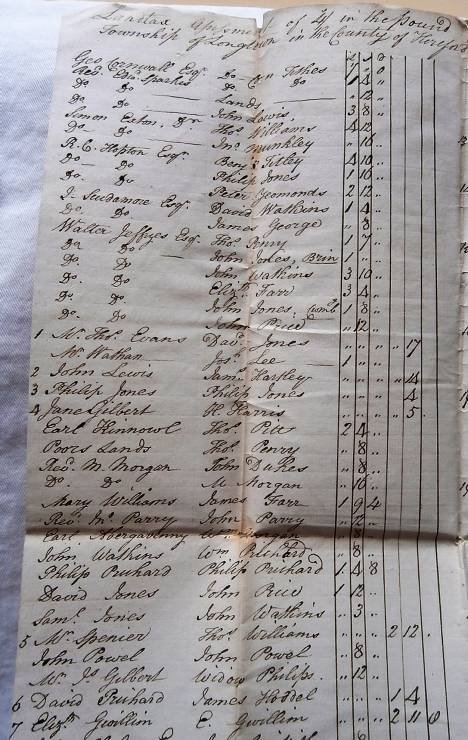 Landtax Assessment of 2s/ in the Pound
Township of Longtown in the County of Hereford
Geo Cornwall Esqr. Do on Tithes 17 0 "
Revd. Edwd. Sparkes Do Do 1 4 "
Do Do — Lands — " 12 "
Do Do — John Lewis 3 8 "
Simon Exton, Dr. Thos. Williams 4 12 "
Do Do — Jno. Nunkley " 16 "
R. C. Hopton Esqr. Benj: Titley 4 10 "
Do Do Philip Jones 1 16 "
Do Do Peter Yeomonds 2 12 "
J. Scudamore Esqr. David Watkins 1 4 "
Do Do James George " 8 "
Walter Jeffyes Esqr. Thos. Penry 1 7 "
Do Do John Jones, Brin 1 " "
Do Do John Watkins 3 10 "
Do Do Elizth. Farr 3 4 "
Do Do John Jones, Cwmb 1 8 "
Do Do John Price " 12 "
1 Mr. Thos. Evans Davd. Jones " " " " 17
Mr. Nathan — Jos. Lee — 1 " "
2 John Lewis Saml. Hartley " " " " 14
3 Philip Jones Philip Jones " " " " 4
4 Jane Gilbert H. Harris " " " " 5
Earl Kinnowl Thos. Pitt 2 4 "
Poors Lands Thos. Penry " 8 "
Revd. M. Morgan John Dukes " 8 "
Do Do M Morgan " 16 "
Mary Williams James Farr 1 9 4
Revd. Jno. Parry John Parry " 12 "
Earl Abergavenny Wm. Morgan " 8 "
John Watkins Wm Prichard " 8 "
Philip Prichard Philip Prichard 1 4 8
David Jones John Price 1 12 "
Saml. Jones John Watkins " 3 "
5 Mr. Spencer Thos. Williams " " " 2 12
John Powel John Powel " 8 "
Mr. Js. Gilbert Widow Philips " 12 "
6 David Prichard James Hoddel " " " 1 4
7 Elizth. Gwillim E. Gwillim " " " 2 11 0